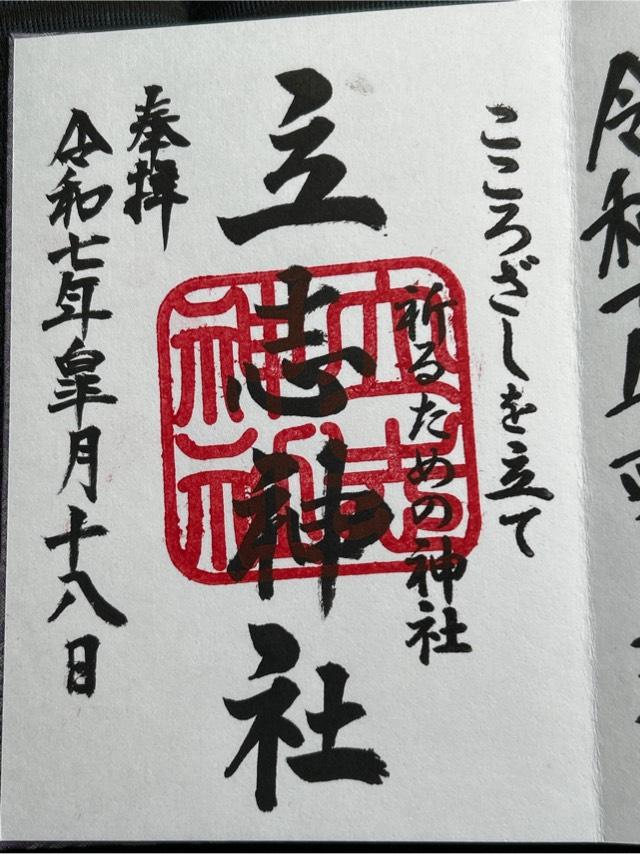 こころざしを立て
祈るための神社
立志神社
立志神社
奉拝
令和七年皐月十八日